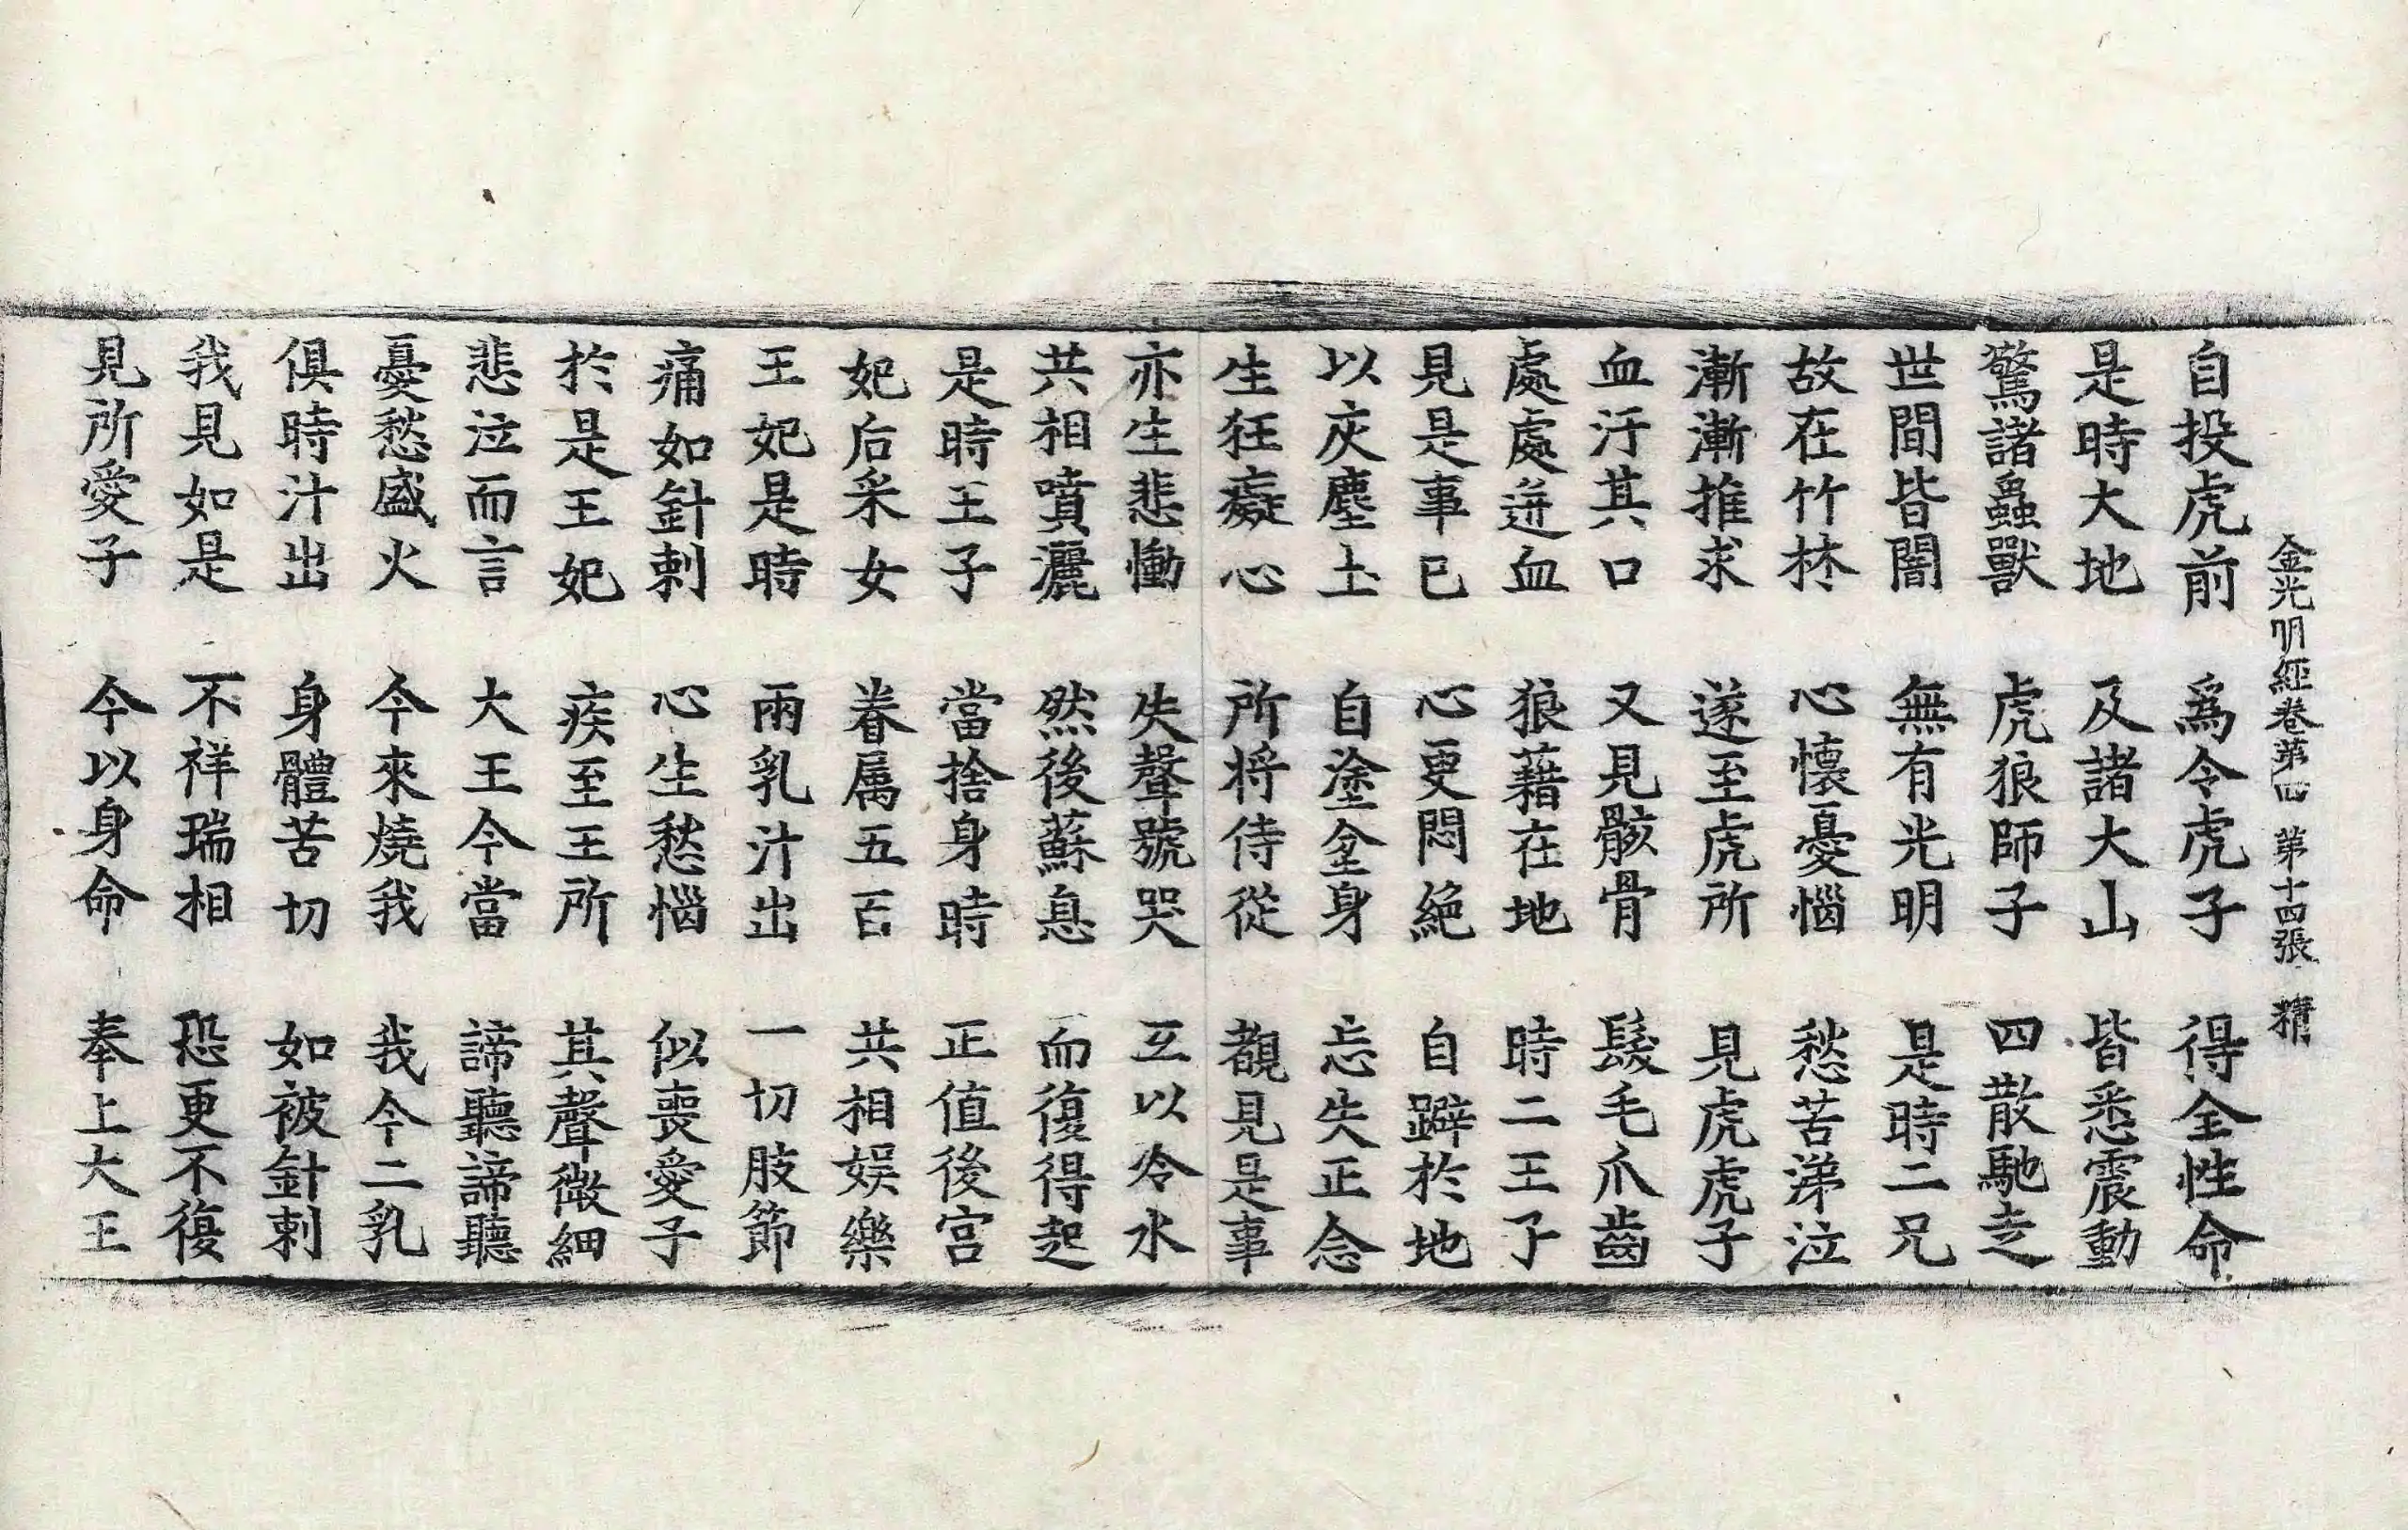 金光明經卷第四 第十四張 精
自投虎前 爲令虎子 得全性命
是時大地 及諸大山 皆悉震動
驚諸蟲獸 虎狼師子 四散馳走
世間皆闇 無有光明 是時二兄
故在竹林 心懷憂惱 愁苦涕泣
漸漸推求 遂至虎所 見虎虎子
血汙其口 又見骸骨 髮毛爪齒
處處迸血 狼藉在地 時二王子
見是事已 心更悶絕 自躃於地
以灰塵土 自塗坌身 忘失正念
生狂癡心 所将侍從 覩見是事
亦生悲慟 失聲號哭 互以冷水
共相噴灑 然後蘇息 而復得起
是時王子 當捨身時 正值後宮
妃后采女 眷属五百 共相娛樂
王妃是時 兩乳汁出 一切肢節
痛如針刺 心生愁惱 似喪愛子
於是王妃 疾至王所 其聲微細
悲泣而言 大王今當 諦聽諦聽
憂愁盛火 今來燒我 我今二乳
俱時汁出 身體苦切 如被針刺
我見如是 不祥瑞相 恐更不復
見所愛子 今以身命 奉上大王